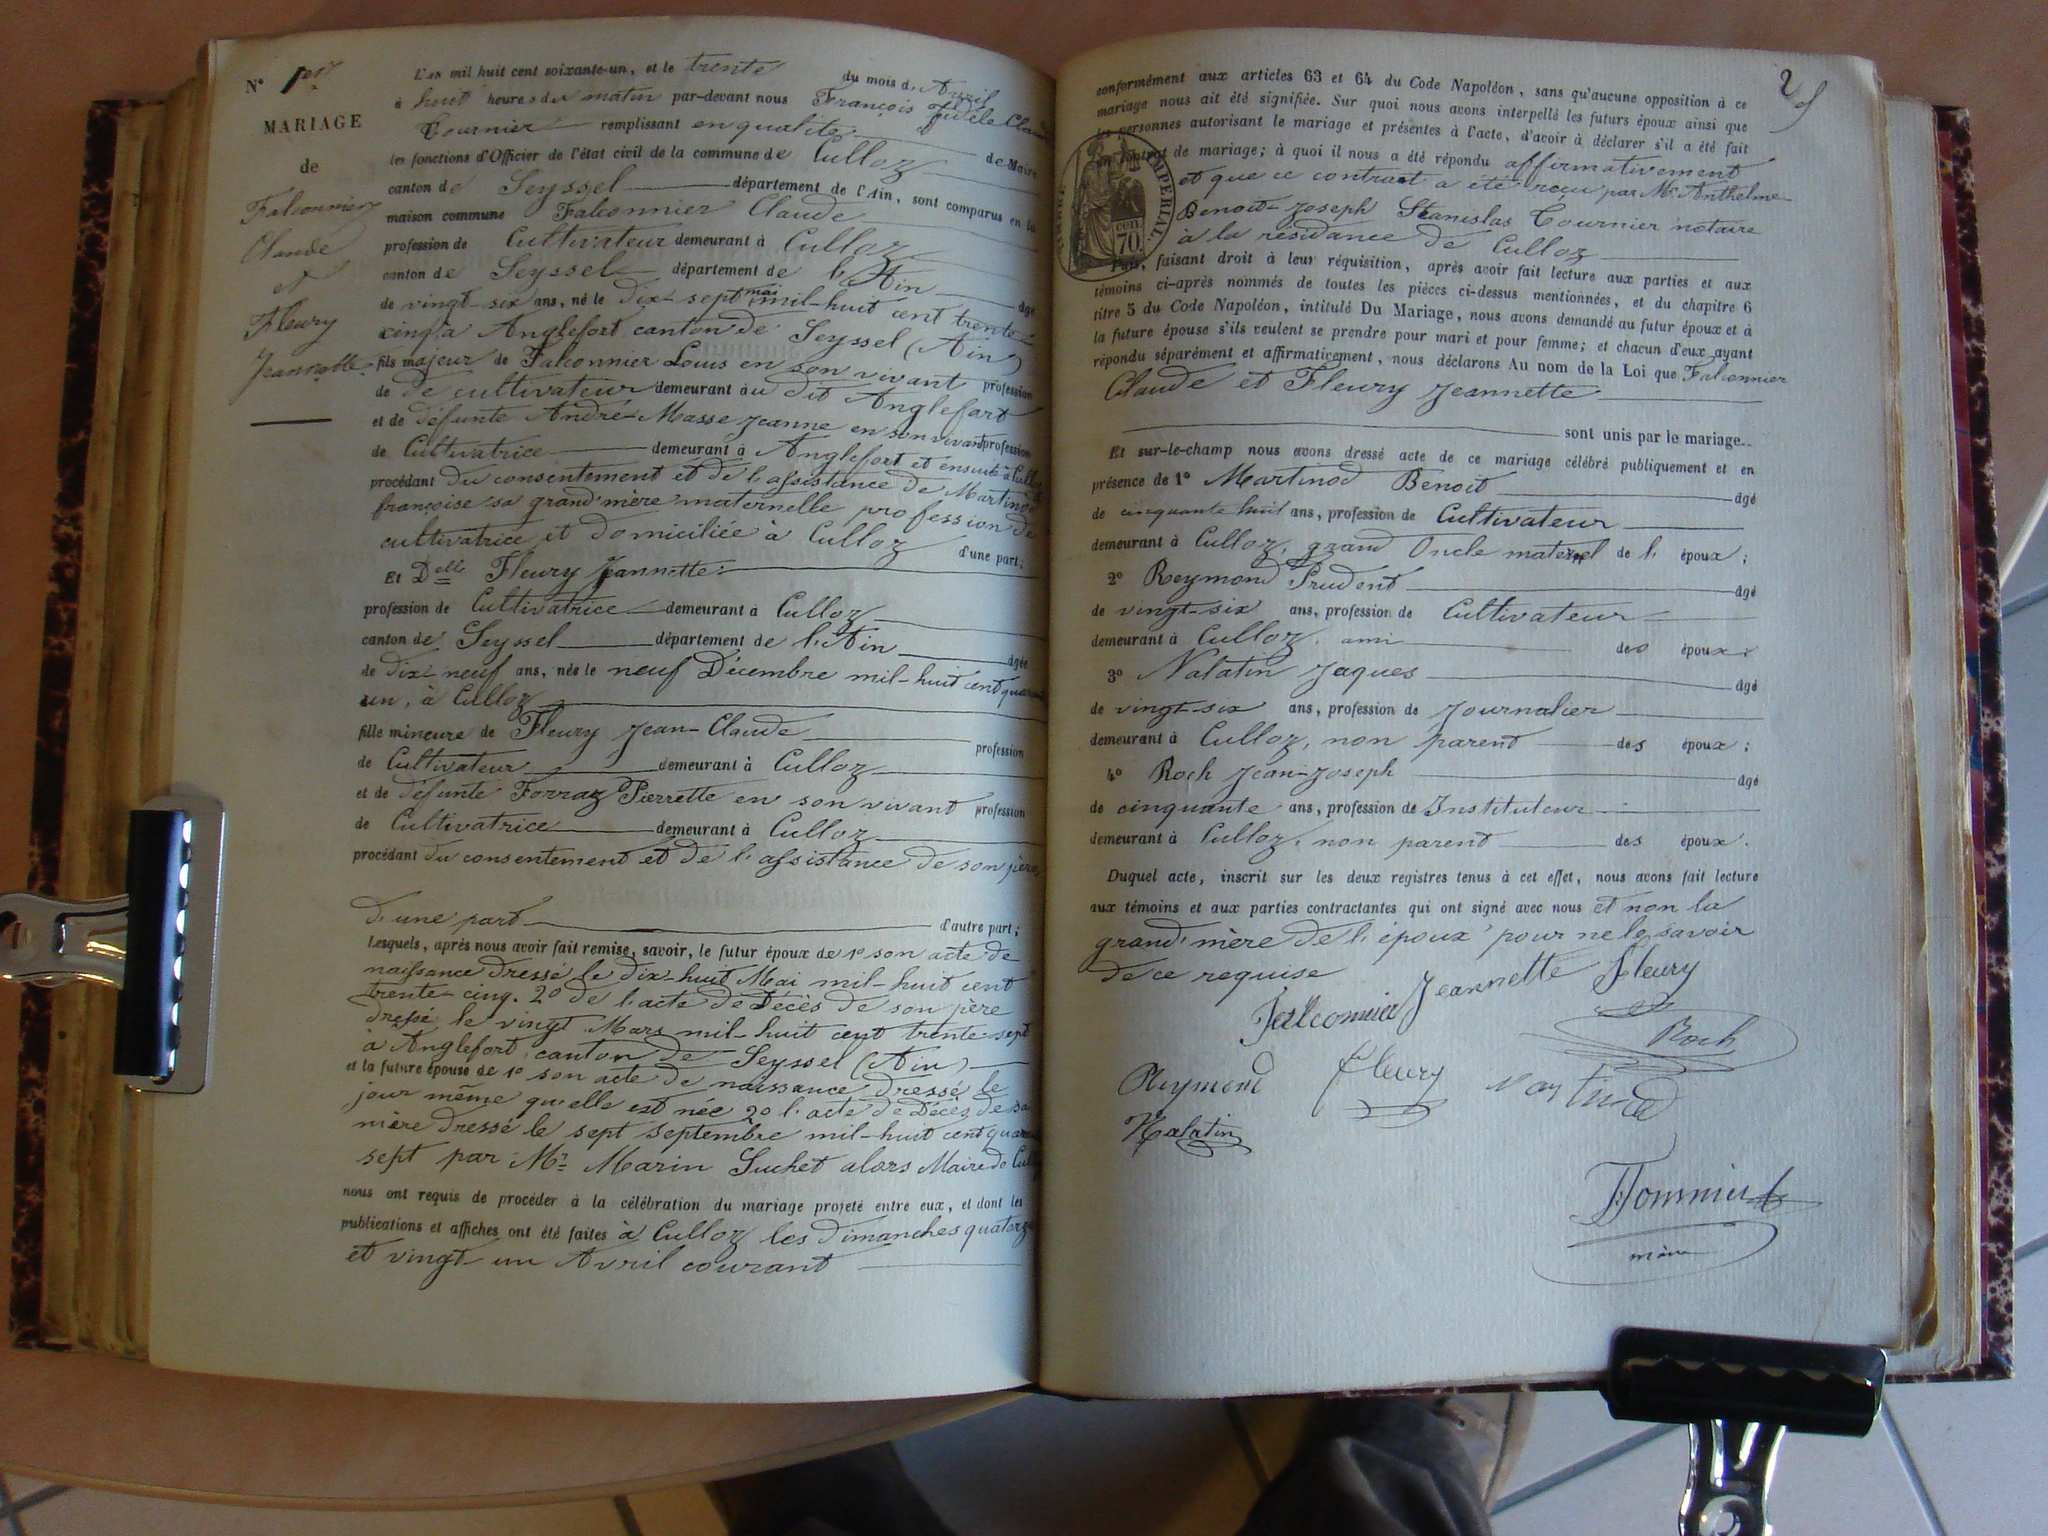 N° 1er
MARIAGE
de
Falconnier
Claude
et
Fleury
Jeannette
L'an mil huit cent soixante-un, et le trente du mois d'Avril
à huit heures du matin par-devant nous François Fidèle Claude
Tournier remplissant en qualité de Maire
les fonctions d'Officier de l'état civil de la commune de Culloz
canton de Seyssel département de l'Ain, sont comparus en la
maison commune Falconnier Claude
profession de Cultivateur demeurant à Culloz
canton de Seyssel département de l'Ain âgé
de vingt-six ans, né le dix-sept mai mil-huit cent trente-
cinq à Anglefort canton de Seyssel (Ain)
fils majeur de Falconnier Louis en son vivant profession
de de cultivateur demeurant au dit Anglefort
et de défunte André-Masse Jeanne en son vivant profession
de Cultivatrice demeurant à Anglefort et ensuite à Culloz
procédant du consentement et de l'assistance de Martinod
françoise sa grand'mère maternelle profession de
cultivatrice et domiciliée à Culloz d'une part;
Et Delle Fleury Jeannette
profession de Cultivatrice demeurant à Culloz
canton de Seyssel département de l'Ain âgée
de dix-neuf ans, née le neuf Décembre mil-huit cent quarante
un, à Culloz
fille mineure de Fleury Jean-Claude profession
de Cultivateur demeurant à Culloz
et de défunte Forraz Pierrette en son vivant profession
de Cultivatrice demeurant à Culloz
procédant du consentement et de l'assistance de son père,
d'une part d'autre part;
Lesquels, après nous avoir fait remise, savoir, le futur époux de 1° son acte de
naissance dressé le dix-huit Mai mil-huit cent
trente-cinq. 2° de l'acte de Décès de son père
dressé le vingt Mars mil-huit cent trente-sept
à Anglefort canton de Seyssel (Ain)
et la future épouse de 1° son acte de naissance dressé le
jour même qu'elle est née 2° l'acte de Décès de sa
mère dressé le sept septembre mil-huit cent quarante
sept par Mr Marin Suchet alors Maire de Culloz
nous ont requis de procéder à la célébration du mariage projeté entre eux, et dont les
publications et affiches ont été faites à Culloz les dimanches quatorze
et vingt-un Avril courant
2
conformément aux articles 63 et 64 du Code Napoléon, sans qu'aucune opposition à ce
mariage nous ait été signifiée. Sur quoi nous avons interpellé les futurs époux ainsi que
les personnes autorisant le mariage et présentes à l'acte, d'avoir à déclarer s'il a été fait
un contrat de mariage; à quoi il nous a été répondu affirmativement
et que ce contrat a été reçu par Me Anthelme
Benoit-Joseph Stanislas Tournier notaire
à la résidance de Culloz
IMPERIAL.
cen.
70
Puis, faisant droit à leur réquisition, après avoir fait lecture aux parties et aux
témoins ci-après nommés de toutes les pièces ci-dessus mentionnées, et du chapitre 6
titre 5 du Code Napoléon, intitulé Du Mariage, nous avons demandé au futur époux et à
la future épouse s'ils veulent se prendre pour mari et pour femme; et chacun d'eux ayant
répondu séparément et affirmativement, nous déclarons Au nom de la Loi que Falconnier
Claude et Fleury Jeannette
sont unis par le mariage.
Et sur-le-champ nous avons dressé acte de ce mariage célébré publiquement et en
présence de 1° Martinod Benoit âgé
de cinquante huit ans, profession de Cultivateur
demeurant à Culloz, grand Oncle maternel de l' époux;
2° Reymond Prudent âgé
de vingt-six ans, profession de Cultivateur
demeurant à Culloz, ami des époux;
3° Nalatin Jaques âgé
de vingt-six ans, profession de Journalier
demeurant à Culloz, non parent des époux;
4° Roch Jean-Joseph âgé
de cinquante ans, profession de Instituteur
demeurant à Culloz, non parent des époux.
Duquel acte, inscrit sur les deux registres tenus à cet effet, nous avons fait lecture
aux témoins et aux parties contractantes qui ont signé avec nous et non la
grand'mère de l'époux pour ne le savoir
de ce requise
Jeannette Fleury
Falconnier
Roch
Reymond
Fleury
Martinod
Nalatin
F. Tournier
maire